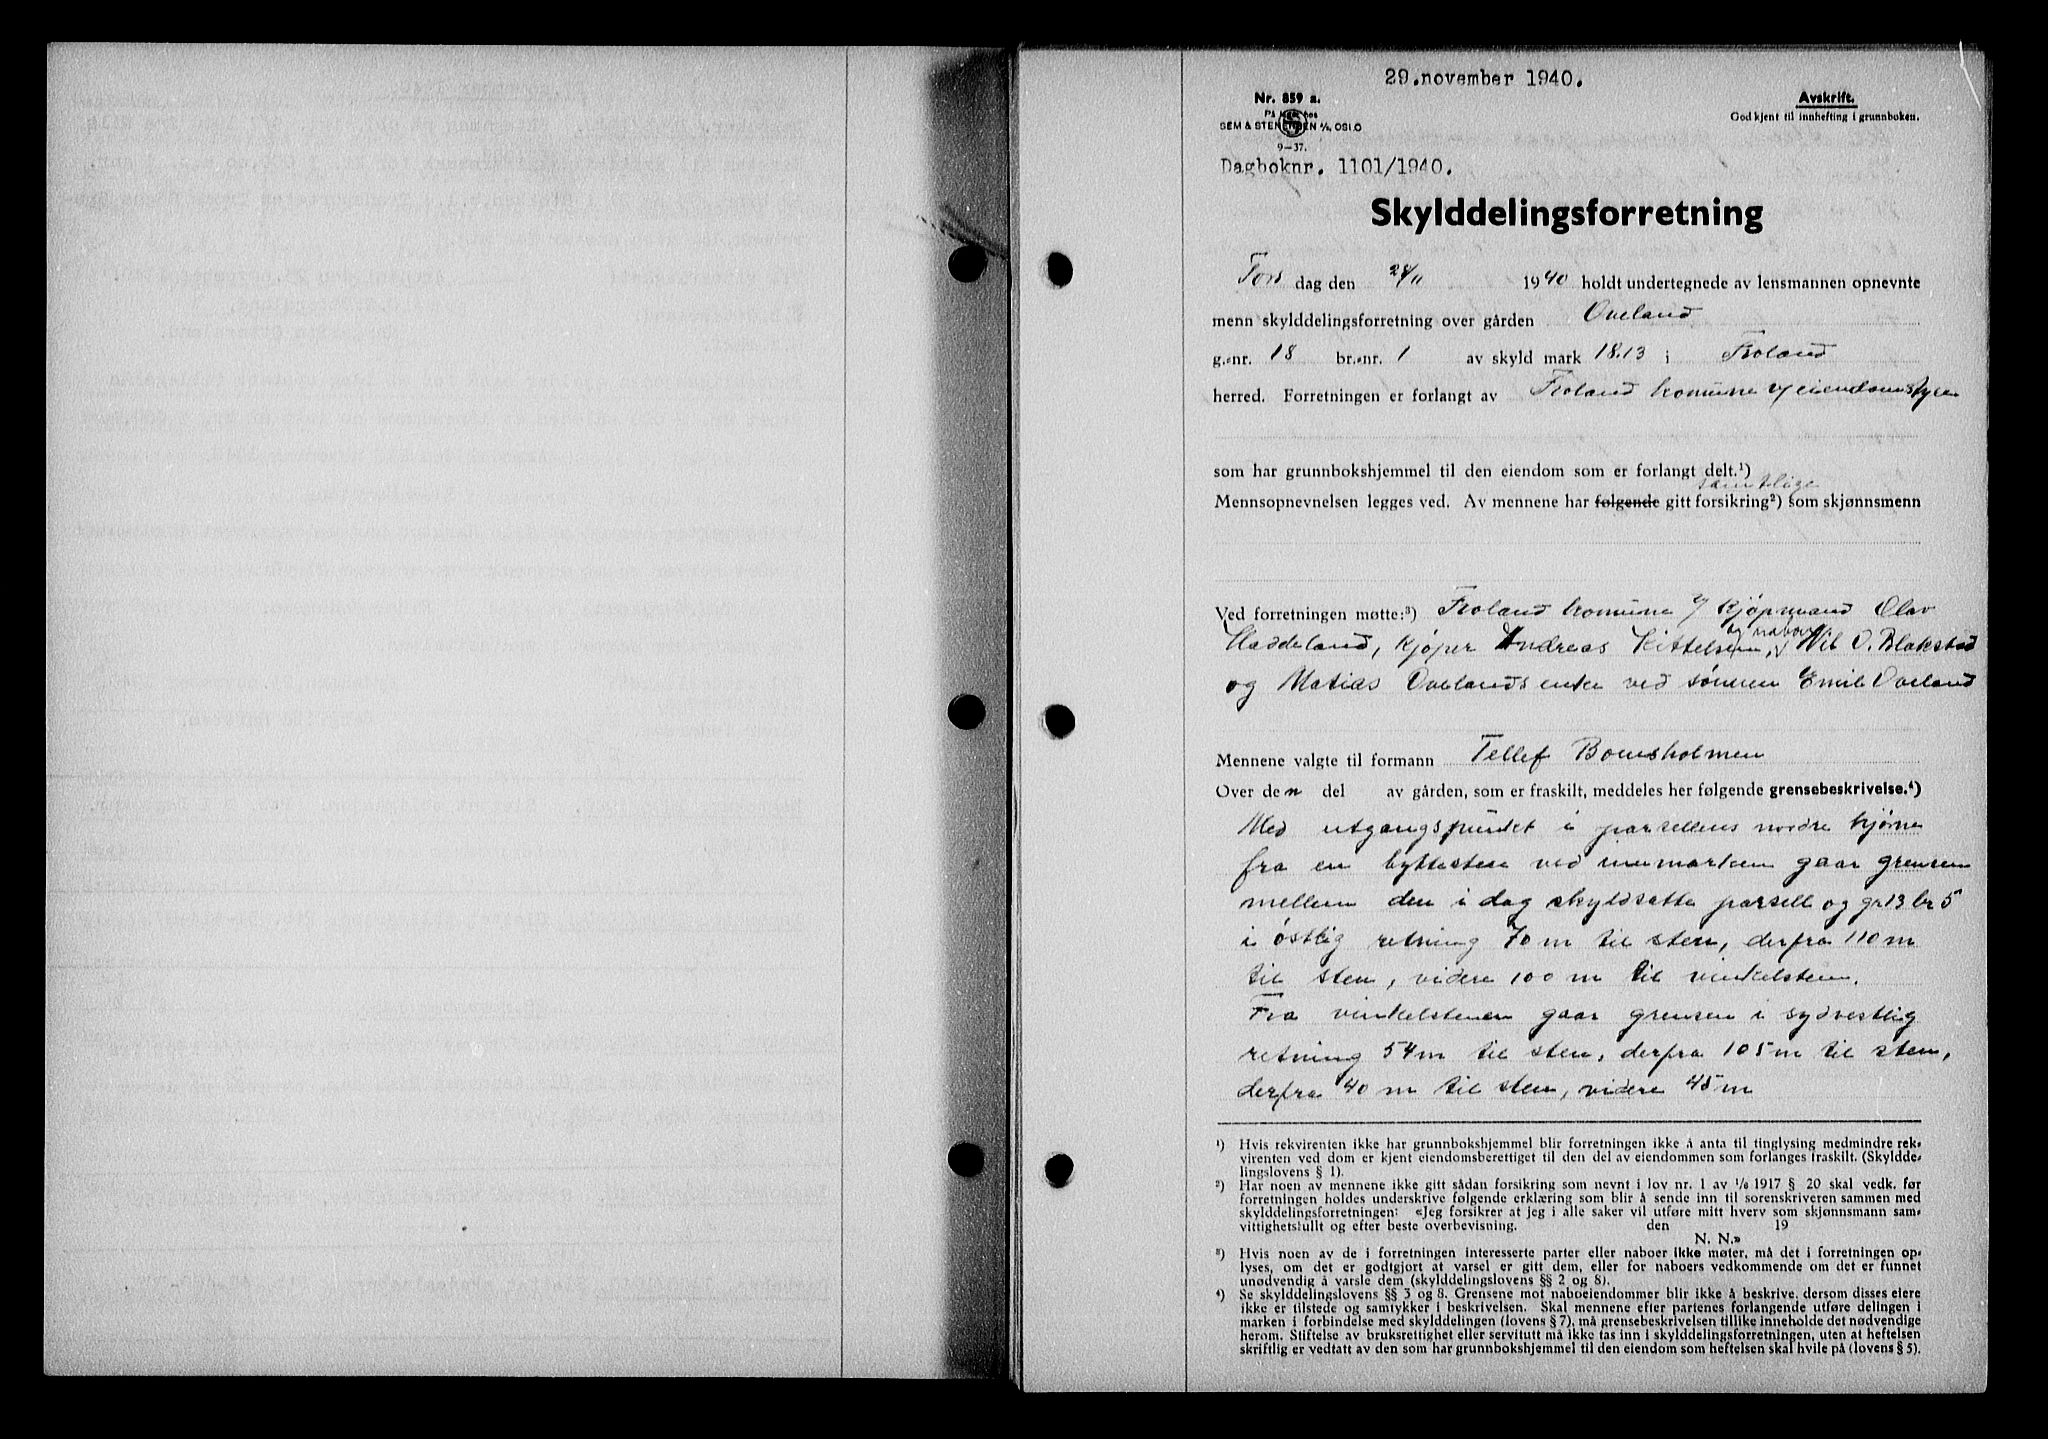 29.november 1940.
Nr. 859 a.
På lager hos
SEM & STENERSEN A/S, OSLO
9—37.
Avskrift.
Godkjent til innhefting i grunnboken.
Dagboknr. 1101/1940.
Skylddelingsforretning
Tors dag den 28/11 1940 holdt undertegnede av lensmannen opnevnte
menn skylddelingsforretning over gården Oveland
g.-nr. 18 br.-nr. 1 av skyld mark 18.13 i Froland
herred. Forretningen er forlangt av Froland komune v/ eiendomsstyre
som har grunnbokshjemmel til den eiendom som er forlangt delt.¹)
samtlige
Mennsopnevnelsen legges ved. Av mennene har følgende gitt forsikring²) som skjønnsmenn
Ved forretningen møtte:³) Froland komune v/ kjøpmand Olav
Haddeland, kjøper Andreas Kittelsen, og naboer Nil O. Blakstad
og Matias Ovelands enke ved sønnen Emil Oveland
Mennene valgte til formann Tellef Bomsholmen
Over den del av gården, som er fraskilt, meddeles her følgende grensebeskrivelse.⁴)
Med utgangspunket i parsellens nordre hjørne
fra en byttesten ved innmarken gaar grensen
mellem den i dag skyldsatte parsell og gr 13 br 5
i østlig retning 70 m til sten, derfra 110 m
til sten, videre 100 m til vinkelsten.
Fra vinkelstenen gaar grensen i sydvestlig
retning 54 m til sten, derfra 105 m til sten,
derfra 40 m til sten, videre 45 m
¹) Hvis rekvirenten ikke har grunnbokshjemmel blir forretningen ikke å anta til tinglysing medmindre rek-
virenten ved dom er kjent eiendomsberettiget til den del av eiendommen som forlanges fraskilt. (Skyldde-
lingslovens § 1).
²) Har noen av mennene ikke gitt sådan forsikring som nevnt i lov nr. 1 av 1/6 1917 § 20 skal vedk. før
forretningen holdes underskrive følgende erklæring som blir å sende inn til sorenskriveren sammen med
skylddelingsforretningen: «Jeg forsikrer at jeg i alle saker vil utføre mitt hverv som skjønnsmann sam-
vittighetsfullt og efter beste overbevisning. den 19
N. N.»
³) Hvis noen av de i forretningen interesserte parter eller naboer ikke møter, må det i forretningen op-
lyses, om det er godtgjort at varsel er gitt dem, eller for naboers vedkommende om det er funnet
unødvendig å varsle dem (skylddelingslovens §§ 2 og 8).
⁴) Se skylddelingslovens §§ 3 og 8. Grensene mot naboeiendommer blir ikke å beskrive, dersom disses eiere
ikke er tilstede og samtykker i beskrivelsen. Skal mennene efter partenes forlangende utføre delingen i
marken i forbindelse med skylddelingen (lovens § 7), må grensebeskrivelsen tillike inneholde det nødvendige
herom. Stiftelse av bruksrettighet eller servitutt må ikke tas inn i skylddelingsforretningen, uten at heftelsen
skriftlig er vedtatt av den som har grunnbokshjemmel til den eiendom som heftelsen skal hvile på (lovens § 5).